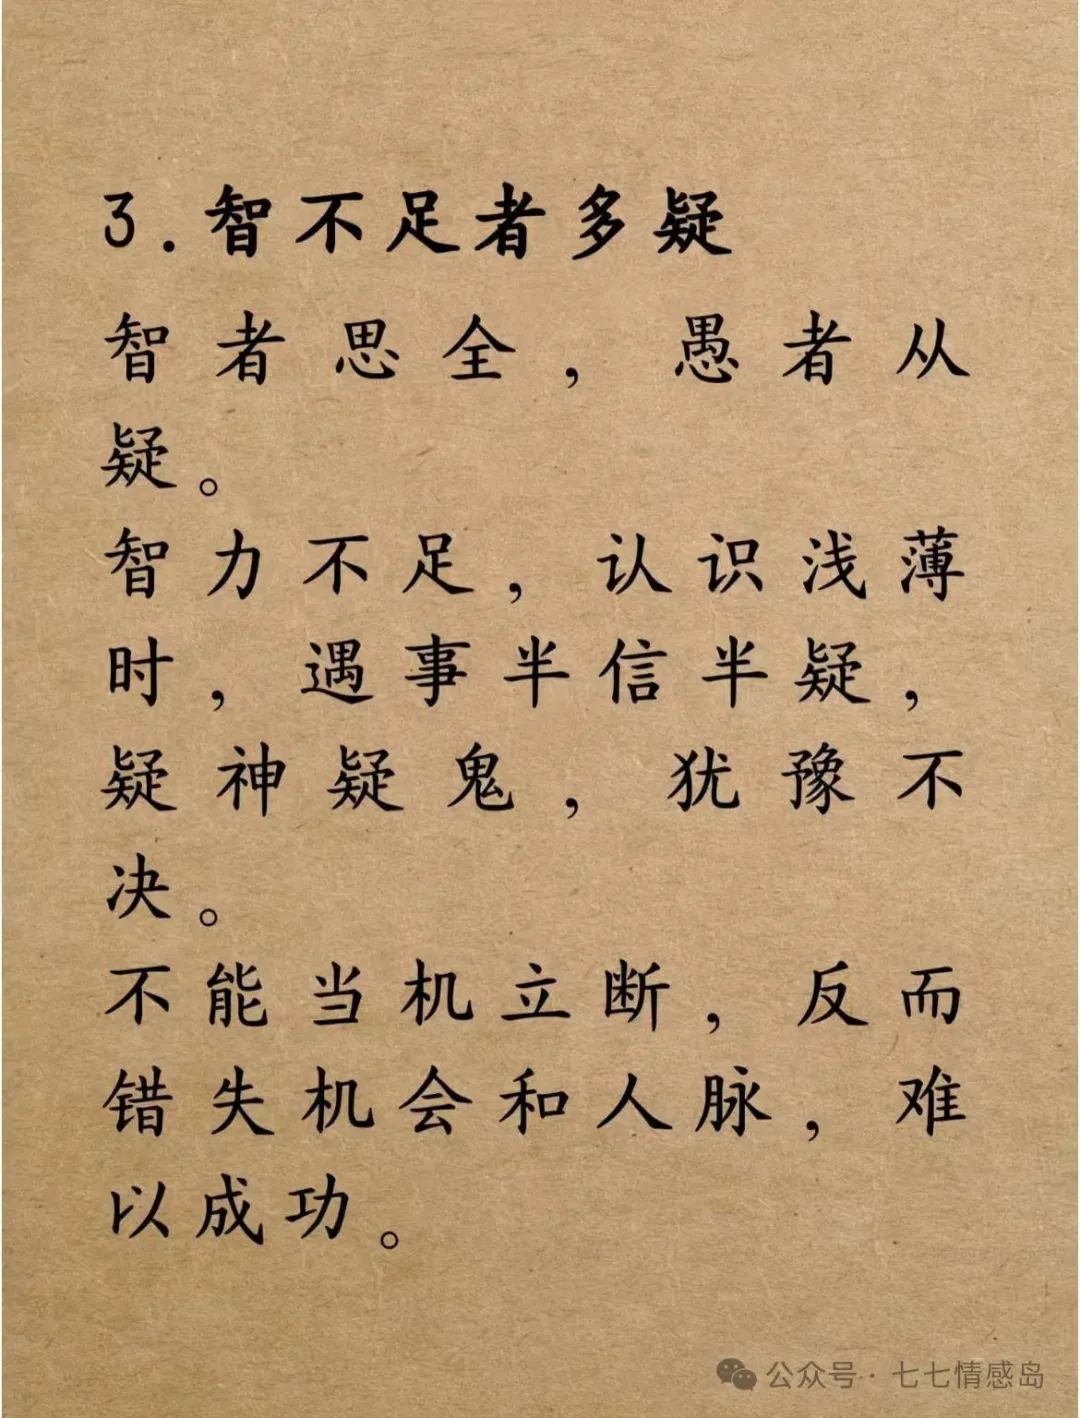 3.智不足者多疑
智者思全，愚者从
疑。
智力不足，认识浅薄
时，遇事半信半疑，
疑神疑鬼，犹豫不
决。
不能当机立断，反而
错失机会和人脉，难
以成功。
公众号·七七情感岛